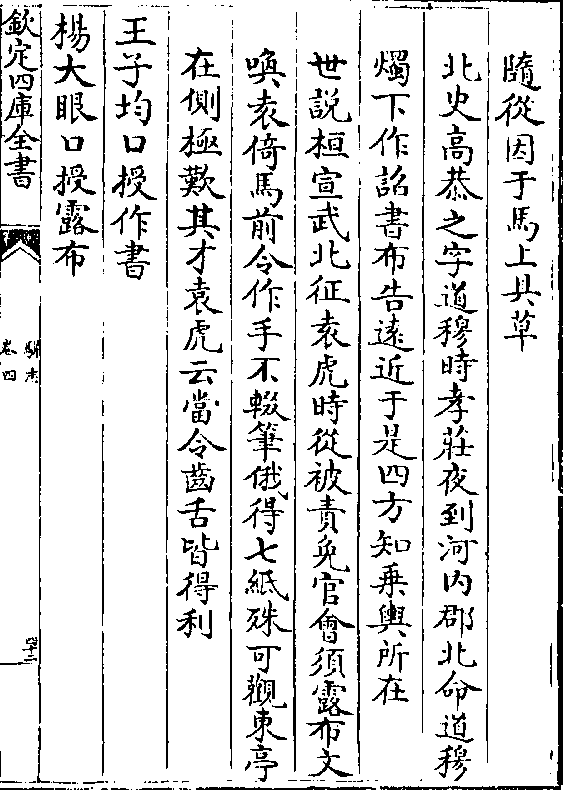 隨從因于馬上具草
北史高恭之字道穆時孝莊夜到河内郡北命道穆
燭下作詔書布告遠近于是四方知乗輿所在
世說桓宣武北征袁虎時從被責免官會須露布文
喚袁倚馬前令作手不輟筆俄得七紙殊可觀東亭
在側極歎其才袁虎云當令齒舌皆得利
王子均口授作書
楊大眼口授露布
欽定四庫全書
卷四